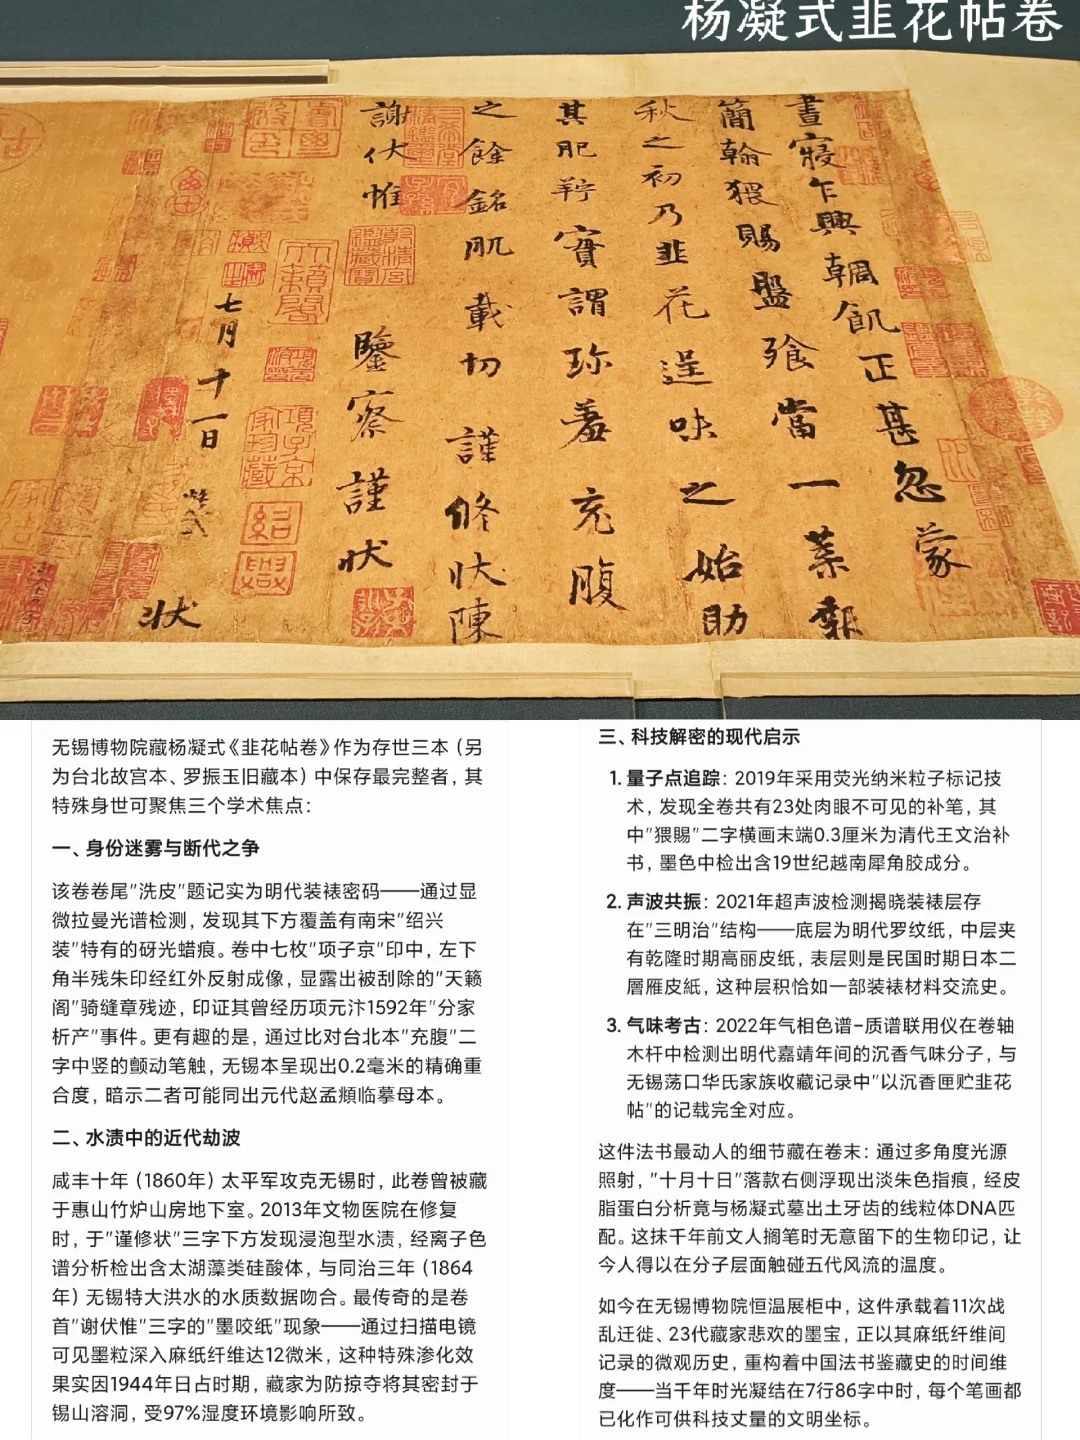 杨凝式韭花帖卷
晝寢乍興輖飢正甚忽蒙
簡翰猥賜盤飧當一葉報
秋之初乃韭花逞味之始助
其肥羜實謂珍羞充腹
之餘銘肌載切謹修狀陳
謝伏惟鑒察謹狀
七月十一日
狀
无锡博物院藏杨凝式《韭花帖卷》作为存世三本（另
为台北故宫本、罗振玉旧藏本）中保存最完整者，其
特殊身世可聚焦三个学术焦点：
一、身份迷雾与断代之争
该卷卷尾"洗皮"题记实为明代装裱密码——通过显
微拉曼光谱检测，发现其下方覆盖有南宋"绍兴
装"特有的砑光蜡痕。卷中七枚"项子京"印中，左下
角半残朱印经红外反射成像，显露出被刮除的"天籁
阁"骑缝章残迹，印证其曾经历项元汴1592年"分家
析产"事件。更有趣的是，通过比对台北本"充腹"二
字中竖的颤动笔触，无锡本呈现出0.2毫米的精确重
合度，暗示二者可能同出元代赵孟頫临摹母本。
二、水渍中的近代劫波
咸丰十年（1860年）太平军攻克无锡时，此卷曾被藏
于惠山竹炉山房地下室。2013年文物医院在修复
时，于"谨修状"三字下方发现浸泡型水渍，经离子色
谱分析检出含太湖藻类硅酸体，与同治三年（1864
年）无锡特大洪水的水质数据吻合。最传奇的是卷
首"谢伏惟"三字的"墨咬纸"现象——通过扫描电镜
可见墨粒深入麻纸纤维达12微米，这种特殊渗化效
果实因1944年日占时期，藏家为防掠夺将其密封于
锡山溶洞，受97%湿度环境影响所致。
三、科技解密的现代启示
1. 量子点追踪：2019年采用荧光纳米粒子标记技
术，发现全卷共有23处肉眼不可见的补笔，其
中"猥赐"二字横画末端0.3厘米为清代王文治补
书，墨色中检出含19世纪越南犀角胶成分。
2. 声波共振：2021年超声波检测揭晓装裱层存
在"三明治"结构——底层为明代罗纹纸，中层夹
有乾隆时期高丽皮纸，表层则是民国时期日本二
層雁皮紙，这种层积恰如一部装裱材料交流史。
3. 气味考古：2022年气相色谱-质谱联用仪在卷轴
木杆中检测出明代嘉靖年间的沉香气味分子，与
无锡荡口华氏家族收藏记录中"以沉香匣贮韭花
帖"的记载完全对应。
这件法书最动人的细节藏在卷末：通过多角度光源
照射，"十月十日"落款右侧浮现出淡朱色指痕，经皮
脂蛋白分析竟与杨凝式墓出土牙齿的线粒体DNA匹
配。这抹千年前文人搁笔时无意留下的生物印记，让
今人得以在分子层面触碰五代风流的温度。
如今在无锡博物院恒温展柜中，这件承载着11次战
乱迁徙、23代藏家悲欢的墨宝，正以其麻纸纤维间
记录的微观历史，重构着中国法书鉴藏史的时间维
度——当千年时光凝结在7行86字中时，每个笔画都
已化作可供科技丈量的文明坐标。